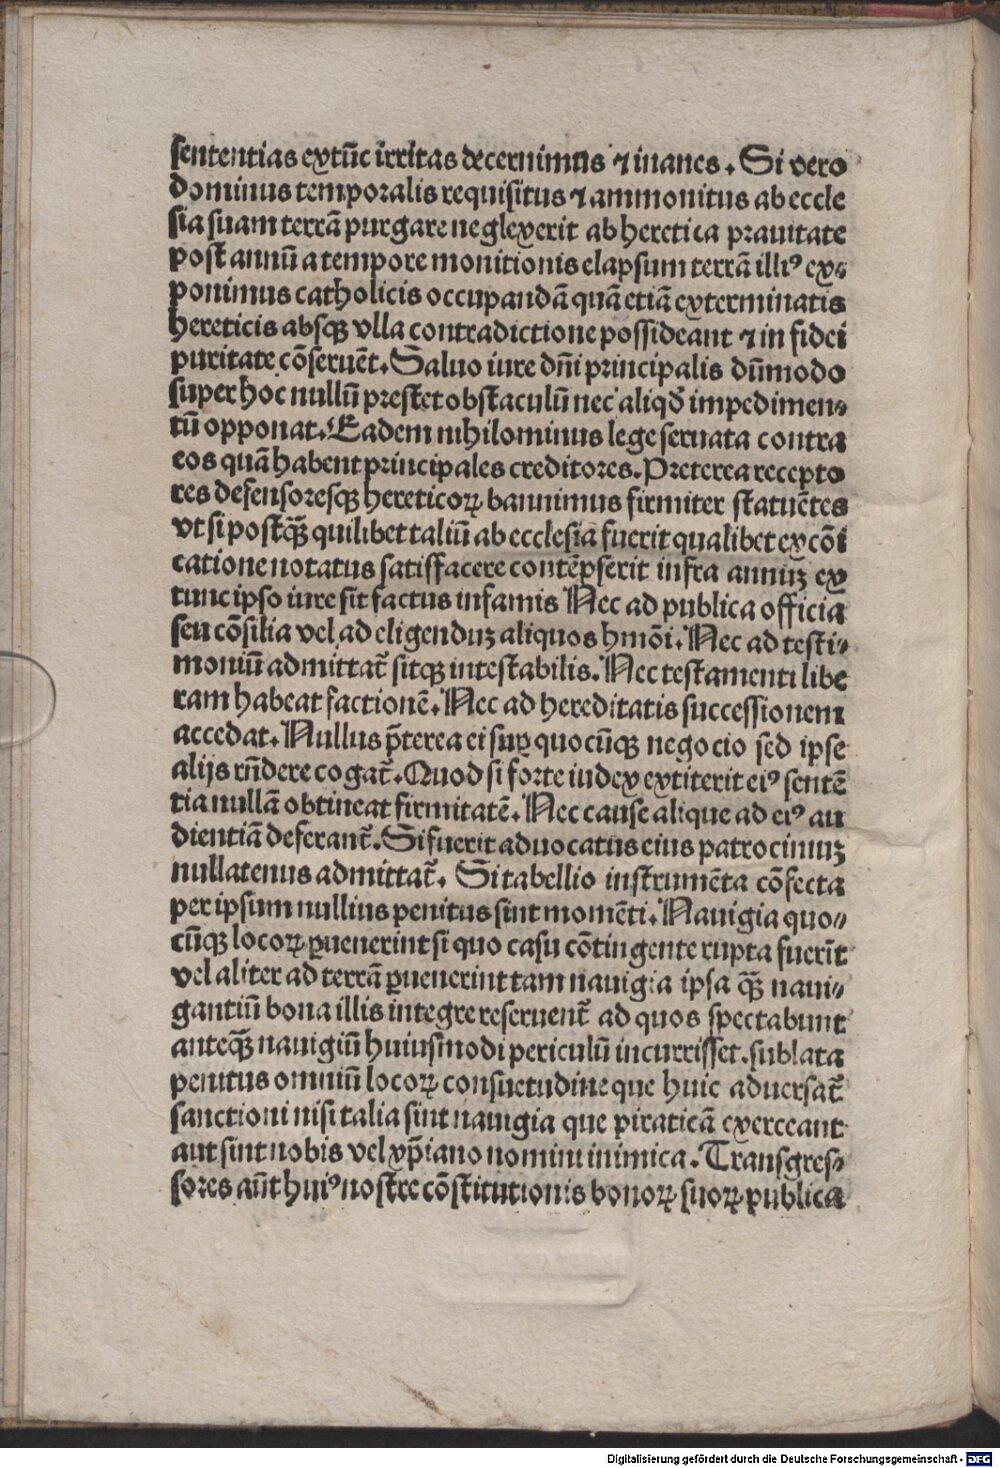 sententias extūc irritas decernimus ⁊ inanes. Si vero
dominus temporalis requisitus ⁊ ammonitus ab eccle
sia suam terrā purgare neglexerit ab heretica prauitate
post annū a tempore monitionis elapsum terrā illiꝰ ex-
ponimus catholicis occupandā quā etiā exterminatis
hereticis absqꝫ vlla contradictione possideant ⁊ in fidei
puritate cōseruēt. Saluo iure dn̄i principalis dūmodo
super hoc nullū prestet obstaculū nec aliqđ impedimen-
tū opponat. Eadem nihilominus lege seruata contra
eos quā habent principales creditores. Preterea recepto
res defensoresqꝫ hereticoꝝ bannimus firmiter statuētes
vt si postqꝫ̄ quilibet taliū ab ecclesia fuerit qualibet excōi
catione notatus satisfacere contēpserit infra annuꝫ ex
tunc ipso iure sit factus infamis Nec ad publica officia
seu cōsilia vel ad eligenduꝫ aliquos hmōi. Nec ad testi-
moniū admittat̄ sitqꝫ intestabilis. Nec testamenti libe
ram habeat factionē. Nec ad hereditatis successionem
accedat. Nullus p̄terea ei suꝑ quocūqꝫ negocio sed ipse
alijs rn̄dere cogat̄. Quod si forte iudex extiterit eiꝰ sentē
tia nullā obtineat firmitatē. Nec cause alique ad eiꝰ au
dientiā deferant̄. Si fuerit aduocatus eius patrociniuꝫ
nullatenus admittat̄. Si tabellio instrumēta cōfecta
per ipsum nullius penitus sint momēti. Nauigia quo-
cūqꝫ locoꝝ ꝑuenerint si quo casu cōtingente rupta fuerīt
vel aliter ad terrā ꝑuenerint tam nauigia ipsa qꝫ̄ naui-
gantiū bona illis integre reseruent̄ ad quos spectabunt
anteqꝫ̄ nauigiū huiusmodi periculū incurrisset. sublata
penitus omniū locoꝝ consuetudine que huic aduersat̄
sanctioni nisi talia sint nauigia que piraticā exerceant
aut sint nobis vel xp̄iano nomini inimica. Transgres-
sores aūt huiꝰ nostre cōstitutionis bonoꝝ suoꝝ publica
Digitalisierung gefördert durch die Deutsche Forschungsgemeinschaft - DFG